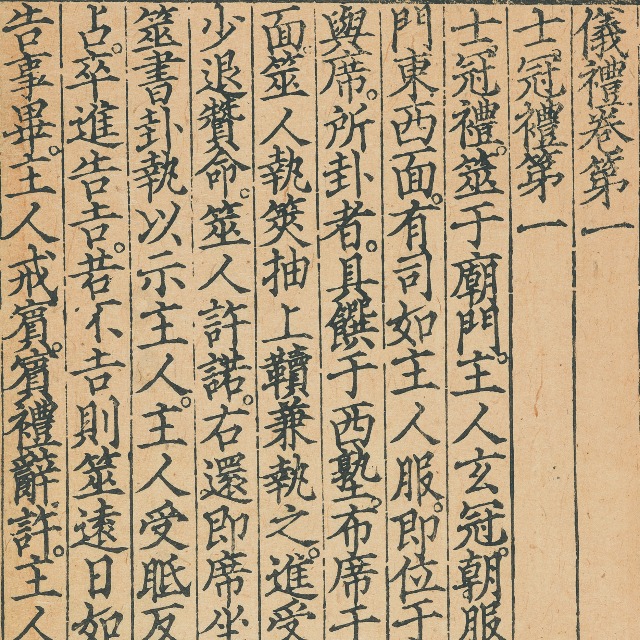 儀禮卷第一
士冠禮第一
士冠禮。筮于廟門。主人玄冠。朝服
門東西面。有司如主人服。即位于
與席。所卦者。具饌于西塾。布席于
面。筮人執筴抽上韇兼執之。進受
少退贊命。筮人許諾。右還即席坐
筮書卦執以示主人。主人受眡反
占。卒進告吉。若不吉則筮遠日如
告事畢。主人戒賓。賓禮辭許。主人